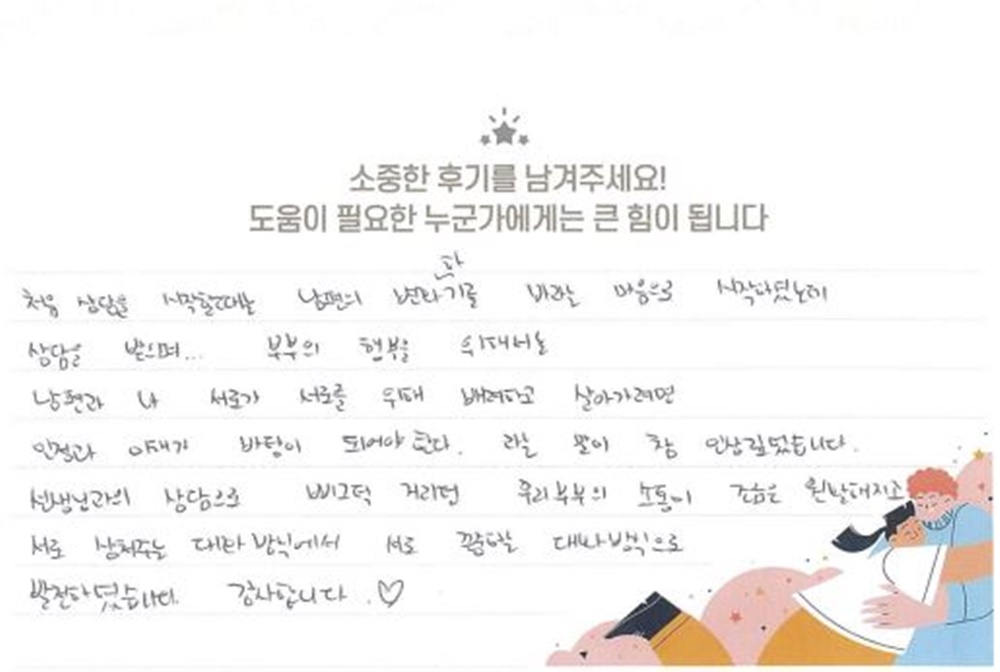 소중한 후기를 남겨주세요!
도움이 필요한 누군가에게는 큰 힘이 됩니다
처음 상담을 시작할때는 남편의 변화가기를 바라는 마음으로 시작하였는데
상담을 받으며... 부부의 행복을 위해서는
남편과 나 서로가 서로를 위해 배려하고 살아가려면
인정과 이해가 바탕이 되어야 한다. 라는 말이 참 인상깊었습니다.
선생님과의 상담으로 삐그덕 거리던 우리부부의 소통이 조금은 원활해지고
서로 상처주는 대화방식에서 서로 존중하는 대화방식으로
발전하였습니다. 감사합니다. ♡